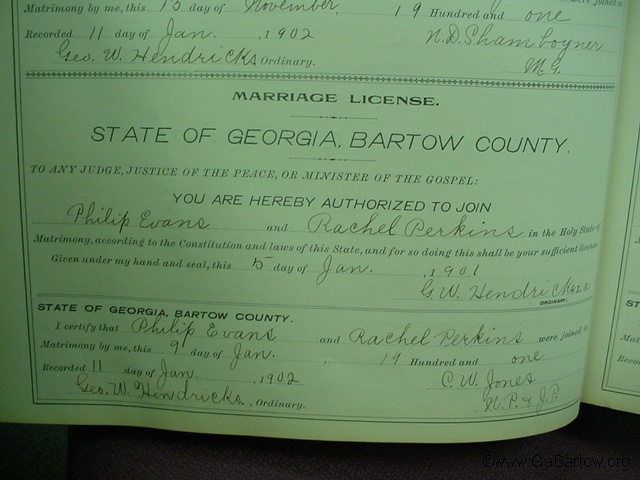 Matrimony by me, this 13 day of November, 19 Hundred and one
Recorded 11 day of Jan. , 1902 N. D. Shamboyner
Geo. W. Hendricks Ordinary. M. G.
MARRIAGE LICENSE.
STATE OF GEORGIA, BARTOW COUNTY.
TO ANY JUDGE, JUSTICE OF THE PEACE, OR MINISTER OF THE GOSPEL:
YOU ARE HEREBY AUTHORIZED TO JOIN
Philip Evans and Rachel Perkins in the Holy State of
Matrimony, according to the Constitution and laws of this State, and for so doing this shall be your sufficient license
Given under my hand and seal, this 5 day of Jan. , 1901
G. W. Hendricks
ORDINARY.
STATE OF GEORGIA, BARTOW COUNTY.
I certify that Philip Evans and Rachel Perkins were joined in
Matrimony by me, this 9 day of Jan. 19 Hundred and one
Recorded 11 day of Jan. , 1902 C. W. Jones
Geo. W. Hendricks. , Ordinary. N. P. & J. P.
©www.GaBartow.org